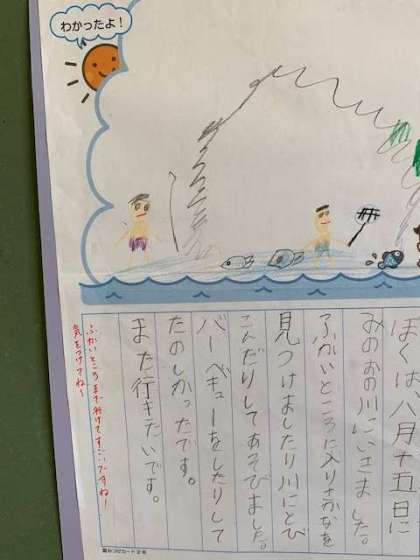 わかったよ！
ぼくは、八月十五日に
みのおの川にいきました。
ふかいところに入りさかなを
見つけましたり川にとび
こんだりしてあそびました。
バーベキューをしたりして
たのしかったです。
また行きたいです。
ふかいところまで行けてすごいですね！
気をつけてね〜